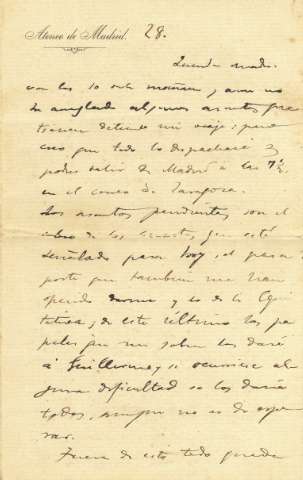 Ateneo de Madrid. 28.
Querida madre:
son las 10 de la mañana, y aun no
he arreglado algunos asuntos que
tienen detenido mi viaje; pero
creo que todo lo despacharé y
podré salir de Madrid a las 7½
en el correo de Zaragoza.
Los asuntos pendientes son el
cobro de los que esté
señalado para hoy, el pasa
porte que tambien me han
y lo de la Equi
tativa; de este último los pa
peles que me sobran los daré
á Guillermo y si ocurriese al-
guna dificultad se los daria
todos, aunque no es de espe
rar.
Fuera de esto todo queda